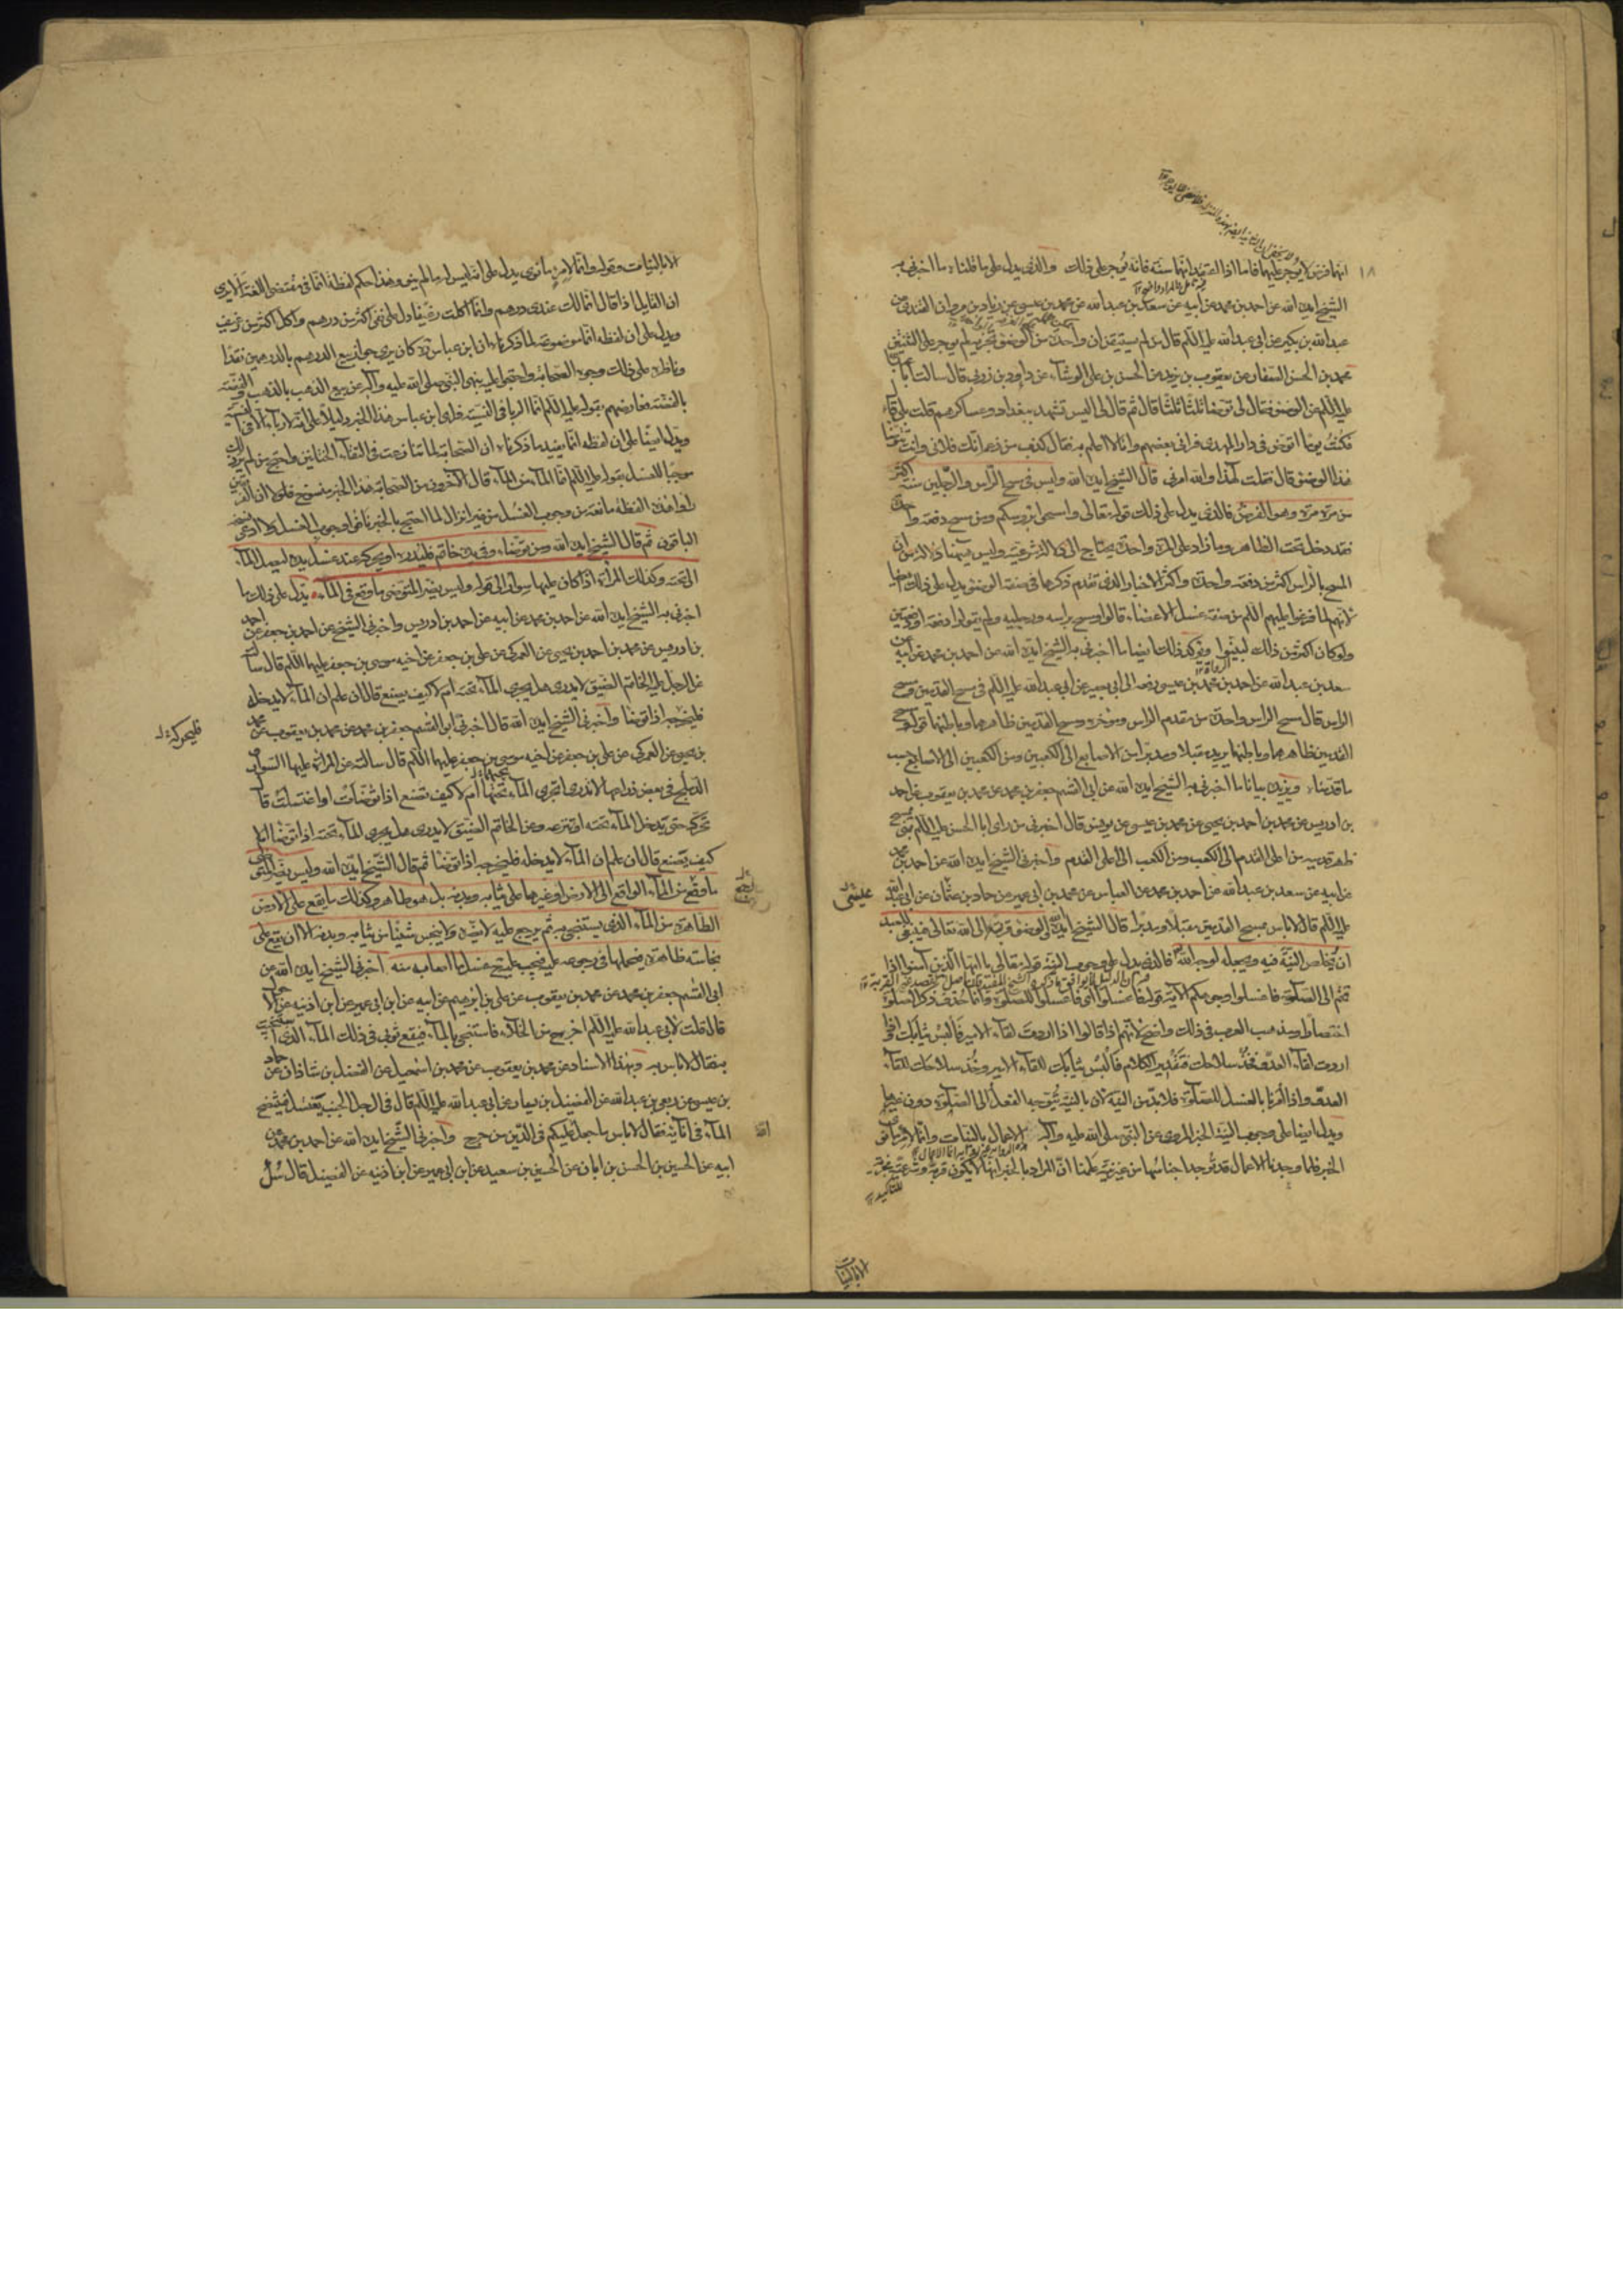 انها فرض لا يوجر عليها فاما اذا اعتقد انها سنة فانه يوجر على ذلك والذى يدل على ما قلناه ما اخبرنى به
الشيخ ايده الله عن احمد بن محمد عن ابيه عن سعد بن عبد الله عن محمد بن عيسى عن زياد بن مروان القندى عن
عبد الله بن بكير عن ابى عبد الله عليه السلم قال من لم يستيقن ان واحدة من الوضوء تجزيه لم يوجر على الثنتين
محمد بن الحسن الصفار عن يعقوب بن يزيد عن الحسن بن على الوشاء عن داود بن زربى قال سالت ابا عبد الله
عليه السلم عن الوضوء فقال لى توضا ثلثا ثلثا قال ثم قال لى اليس تشهد بغداد وعساكرهم قلت بلى قال
فكنت يوما اتوضى فى دار المهدى فرانى بعضهم وانا لا اعلم به فقال كذب من زعم انك فلانى وانت تتوضا
هذا الوضوء قال فقلت لهذا والله امرنى قال الشيخ ايده الله وليس فى مسح الراس والرجلين سنة اكثر
من مرة مرة وهو الفرض فالذى يدل على ذلك قوله تعالى وامسحوا برؤسكم ومن مسح دفعة واحدة
فقد دخل تحت الظاهر وما زاد على المرة الواحدة يحتاج الى دلالة شرعية وليس ههنا دلالة على ان
المسح بالراس اكثر من دفعة واحدة واكثر الاخبار الذى تقدم ذكرها فى صفة الوضوء يدل على ذلك ايضا
لانهم لما فرغوا عليهم السلم من صفة غسل الاعضاء قالوا ومسح براسه ورجليه ولم يقولوا دفعة او دفعتين
ولو كان اكثر من ذلك لبينوا ويؤكد ذلك ايضا ما اخبرنى به الشيخ ايده الله عن احمد بن محمد عن ابيه عن
سعد بن عبد الله عن احمد بن محمد بن عيسى رفعه الى ابى بصير عن ابى عبد الله عليه السلم فى مسح القدمين ومسح
الراس قال مسح الراس واحدة من مقدم الراس ومؤخره ومسح القدمين ظاهرهما وباطنهما قوله ومسح
القدمين ظاهرهما وباطنهما يريد مقبلا ومدبرا من الاصابع الى الكعبين ومن الكعبين الى الاصابع حسب
ما قدمناه ويزيده بيانا ما اخبرنى به الشيخ ايده الله عن ابى القسم جعفر بن محمد عن محمد بن يعقوب عن احمد
بن ادريس عن محمد بن احمد بن يحيى عن محمد بن عيسى عن يونس قال اخبرنى من راى ابا الحسن عليه السلم بمنى يمسح
ظهر قدميه من اعلى القدم الى الكعب ومن الكعب الى اعلى القدم واخبرنى الشيخ ايده الله عن احمد بن محمد
عن ابيه عن سعد بن عبد الله عن احمد بن محمد عن العباس عن محمد بن ابى عمير عن حماد بن عثمان عن ابى عبد الله
عليه السلم قال لا باس بمسح القدمين مقبلا ومدبرا قال الشيخ ايده الله الوضوء قربة الى الله تعالى فينبغى للعبد
ان يخلص النية فيه ويجعله لوجه الله فالذى يدل على وجوب النية قوله تعالى يا ايها الذين امنوا اذا
قمتم الى الصلوة فاغسلوا وجوهكم الاية قوله فاغسلوا اى فاغسلوا للصلوة وانما حذف ذكر الصلوة
اختصارا ومذهب العرب فى ذلك واضح لانهم اذا قالوا اذا اردت لقاء الامير فالبس ثيابك واذا
اردت لقاء العدو فخذ سلاحك فتقدير الكلام فالبس ثيابك للقاء الامير وخذ سلاحك للقاء
العدو واذا امرنا بالغسل للصلوة فلا بد من النية لان بالنية يتوجه الفعل الى الصلوة دون غيرها
ويدل ايضا على وجوب النية الخبر المروى عن النبى صلى الله عليه واله الاعمال بالنيات وانما لامرئ ما نوى
الخبر فلما وجدنا الاعمال قد توجد اجناسها من غير نية علمنا ان المراد بالخبر انها لا يكون قربة وشرعية مجزية
الا بالنيات
الا بالنيات وقوله وانما لامرئ ما نوى يدل على انه ليس له ما لم ينو وهذا حكم لفظة انما فى مقتضى اللغة الا يرى
ان القايل اذا قال انما لك عندى درهم وانما اكلت رغيفا دل على نفى اكثر من درهم واكل اكثر من رغيف
ويدل على ان لفظة انما موضوعة لما ذكرناه ان ابن عباس ره كان يرى جواز بيع الدرهم بالدرهمين نقدا
وناظره على ذلك وجوه الصحابة واحتجوا عليه بنهى النبى صلى الله عليه واله عن بيع الذهب بالذهب والفضة
بالفضة فعارضهم بقوله عليه السلم انما الربا فى النسية فراى ابن عباس هذا الخبر دليلا على انه لا ربا الا فى النسية
ويدل ايضا على ان لفظة انما يفيد ما ذكرناه ان الصحابة لما تنازعت فى التقاء الختانين واحتج من لم ير ذلك
موجبا للغسل بقوله عليه السلم انما الماء من الماء قال الاخرون من الصحابة هذا الخبر منسوخ فلولا ان الفريقين
راوا هذه اللفظة مانعة من وجوب الغسل من غير انزال لما احتج بالخبر نافوا وجوب الغسل ولا ادعى نسخه
الباقون ثم قال الشيخ ايده الله ومن توضا وفى يده خاتم فليدره او يحركه عند غسل يده ليصل الماء
الى تحته وكذلك المرأة اذا كان عليها سوار الى قوله وليس يضر المتوضى ما وقع فى الماء يدل على ذلك ما
اخبرنى به الشيخ ايده الله عن احمد بن محمد عن ابيه عن احمد بن ادريس واخبرنى الشيخ عن احمد بن جعفر عن احمد
بن ادريس عن محمد بن احمد بن يحيى عن العمركى عن على بن جعفر عن اخيه موسى بن جعفر عليهما السلم قال سالته
عن الرجل عليه الخاتم الضيق لا يدرى هل يجرى الماء تحته ام لا كيف يصنع قال ان علم ان الماء لا يدخله
فليخرجه اذا توضا واخبرنى الشيخ ايده الله قال اخبرنى ابو القسم جعفر بن محمد عن محمد بن يعقوب عن محمد
بن يحيى عن العمركى عن على بن جعفر عن اخيه موسى بن جعفر عليهما السلم قال سالته عن المرأة عليها السوار
والدملج فى بعض ذراعها لا تدرى يجرى الماء تحتها ام لا كيف تصنع اذا توضات او اغتسلت قال
تحركه حتى يدخل الماء تحته او تنزعه وعن الخاتم الضيق لا يدرى هل يجرى الماء تحته اذا توضا ام لا
كيف يصنع قال ان علم ان الماء لا يدخله فليخرجه اذا توضا ثم قال الشيخ ايده الله وليس يضر المتوضى
ما وقع من الماء الواقع الى الارض او غيرها على ثيابه وبدنه بل هو طاهر وكذلك ما يقع على الارض
الطاهرة من الماء الذى يستنجى به ثم يرجع عليه لا يضره ولا ينجس شيئا من ثيابه وبدنه الا ان يقع على
نجاسة ظاهرة فيحملها فى رجوعه عليه فيجب عليه غسل ما اصابه منه اخبرنى الشيخ ايده الله عن
ابى القسم جعفر بن محمد عن محمد بن يعقوب عن على بن ابرهيم عن ابيه عن ابن ابى عمير عن ابن اذينة عن الاحول
قال قلت لابى عبد الله عليه السلم اخرج من الخلاء فاستنجى بالماء فيقع ثوبى فى ذلك الماء الذى استنجيت
به فقال لا باس به وبهذا الاسناد عن محمد بن يعقوب عن محمد بن اسمعيل عن الفضل بن شاذان عن حماد
بن عيسى عن ربعى بن عبد الله عن الفضيل بن يسار عن ابى عبد الله عليه السلم قال فى الرجل الجنب يغتسل فينتضح
الماء فى انائه فقال لا باس ما جعل عليكم فى الدين من حرج واخبرنى الشيخ ايده الله عن احمد بن محمد عن
ابيه عن الحسين بن الحسن بن ابان عن الحسين بن سعيد عن ابن ابى عمير عن ابن اذينة عن الفضيل قال سئل
فليحركه